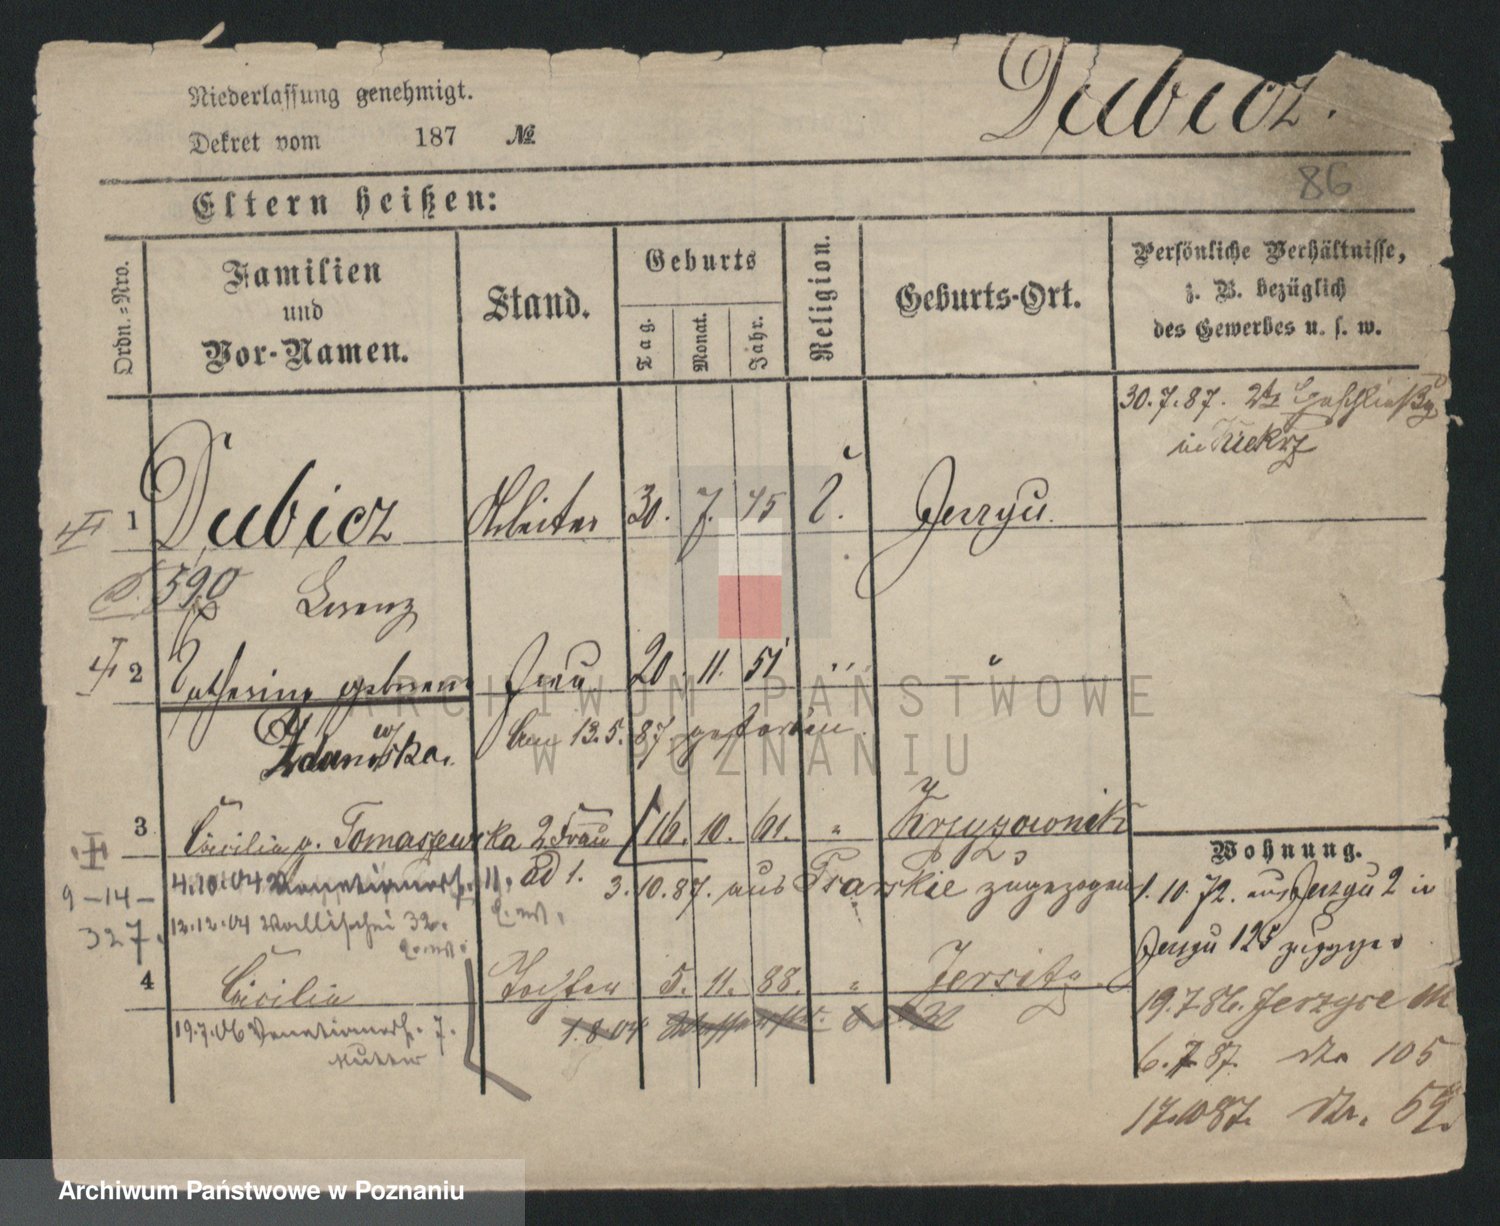 Niederlassung genehmigt.
Dubicz.
Dekret vom 187 №
86
Eltern heißen:
Ordn.-Nro.
Familien
und
Vor-Namen.
Stand.
Geburts
Tag.
Monat.
Jahr.
Religion.
Geburts-Ort.
Persönliche Verhältnisse,
z. B. bezüglich
des Gewerbes u. s. w.
30.7.87. 2te
in Kiekrz
1 Dubicz Arbeiter 30. 7. 45 Jerzyn
590 Lorenz
2 Catharina geborene Frau 20 11. 51 "
Zdanowska. am 13.5.87. gestorben
3 Cäcilia g. Tomaszewska 2 Frau 16. 10. 61. " Krzyzownik
3.10.87. aus zugezogen
4.10.04 11.
9-14-
327.
12.12.04 Wallischei 32.
4 Cäcilia Tochter 5. 11. 88. " Jersitz
19.7.06 Venetianerst. 7.
Mutter
1.8.04
Wohnung.
1.10.72. aus Jerzyn 2 in
Jerzyn 125
19.7.86. Jerzyce
6.7.87. dto 105
17.10.87. dto.
ARCHIWUM PAŃSTWOWE
W POZNANIU
Archiwum Państwowe w Poznaniu